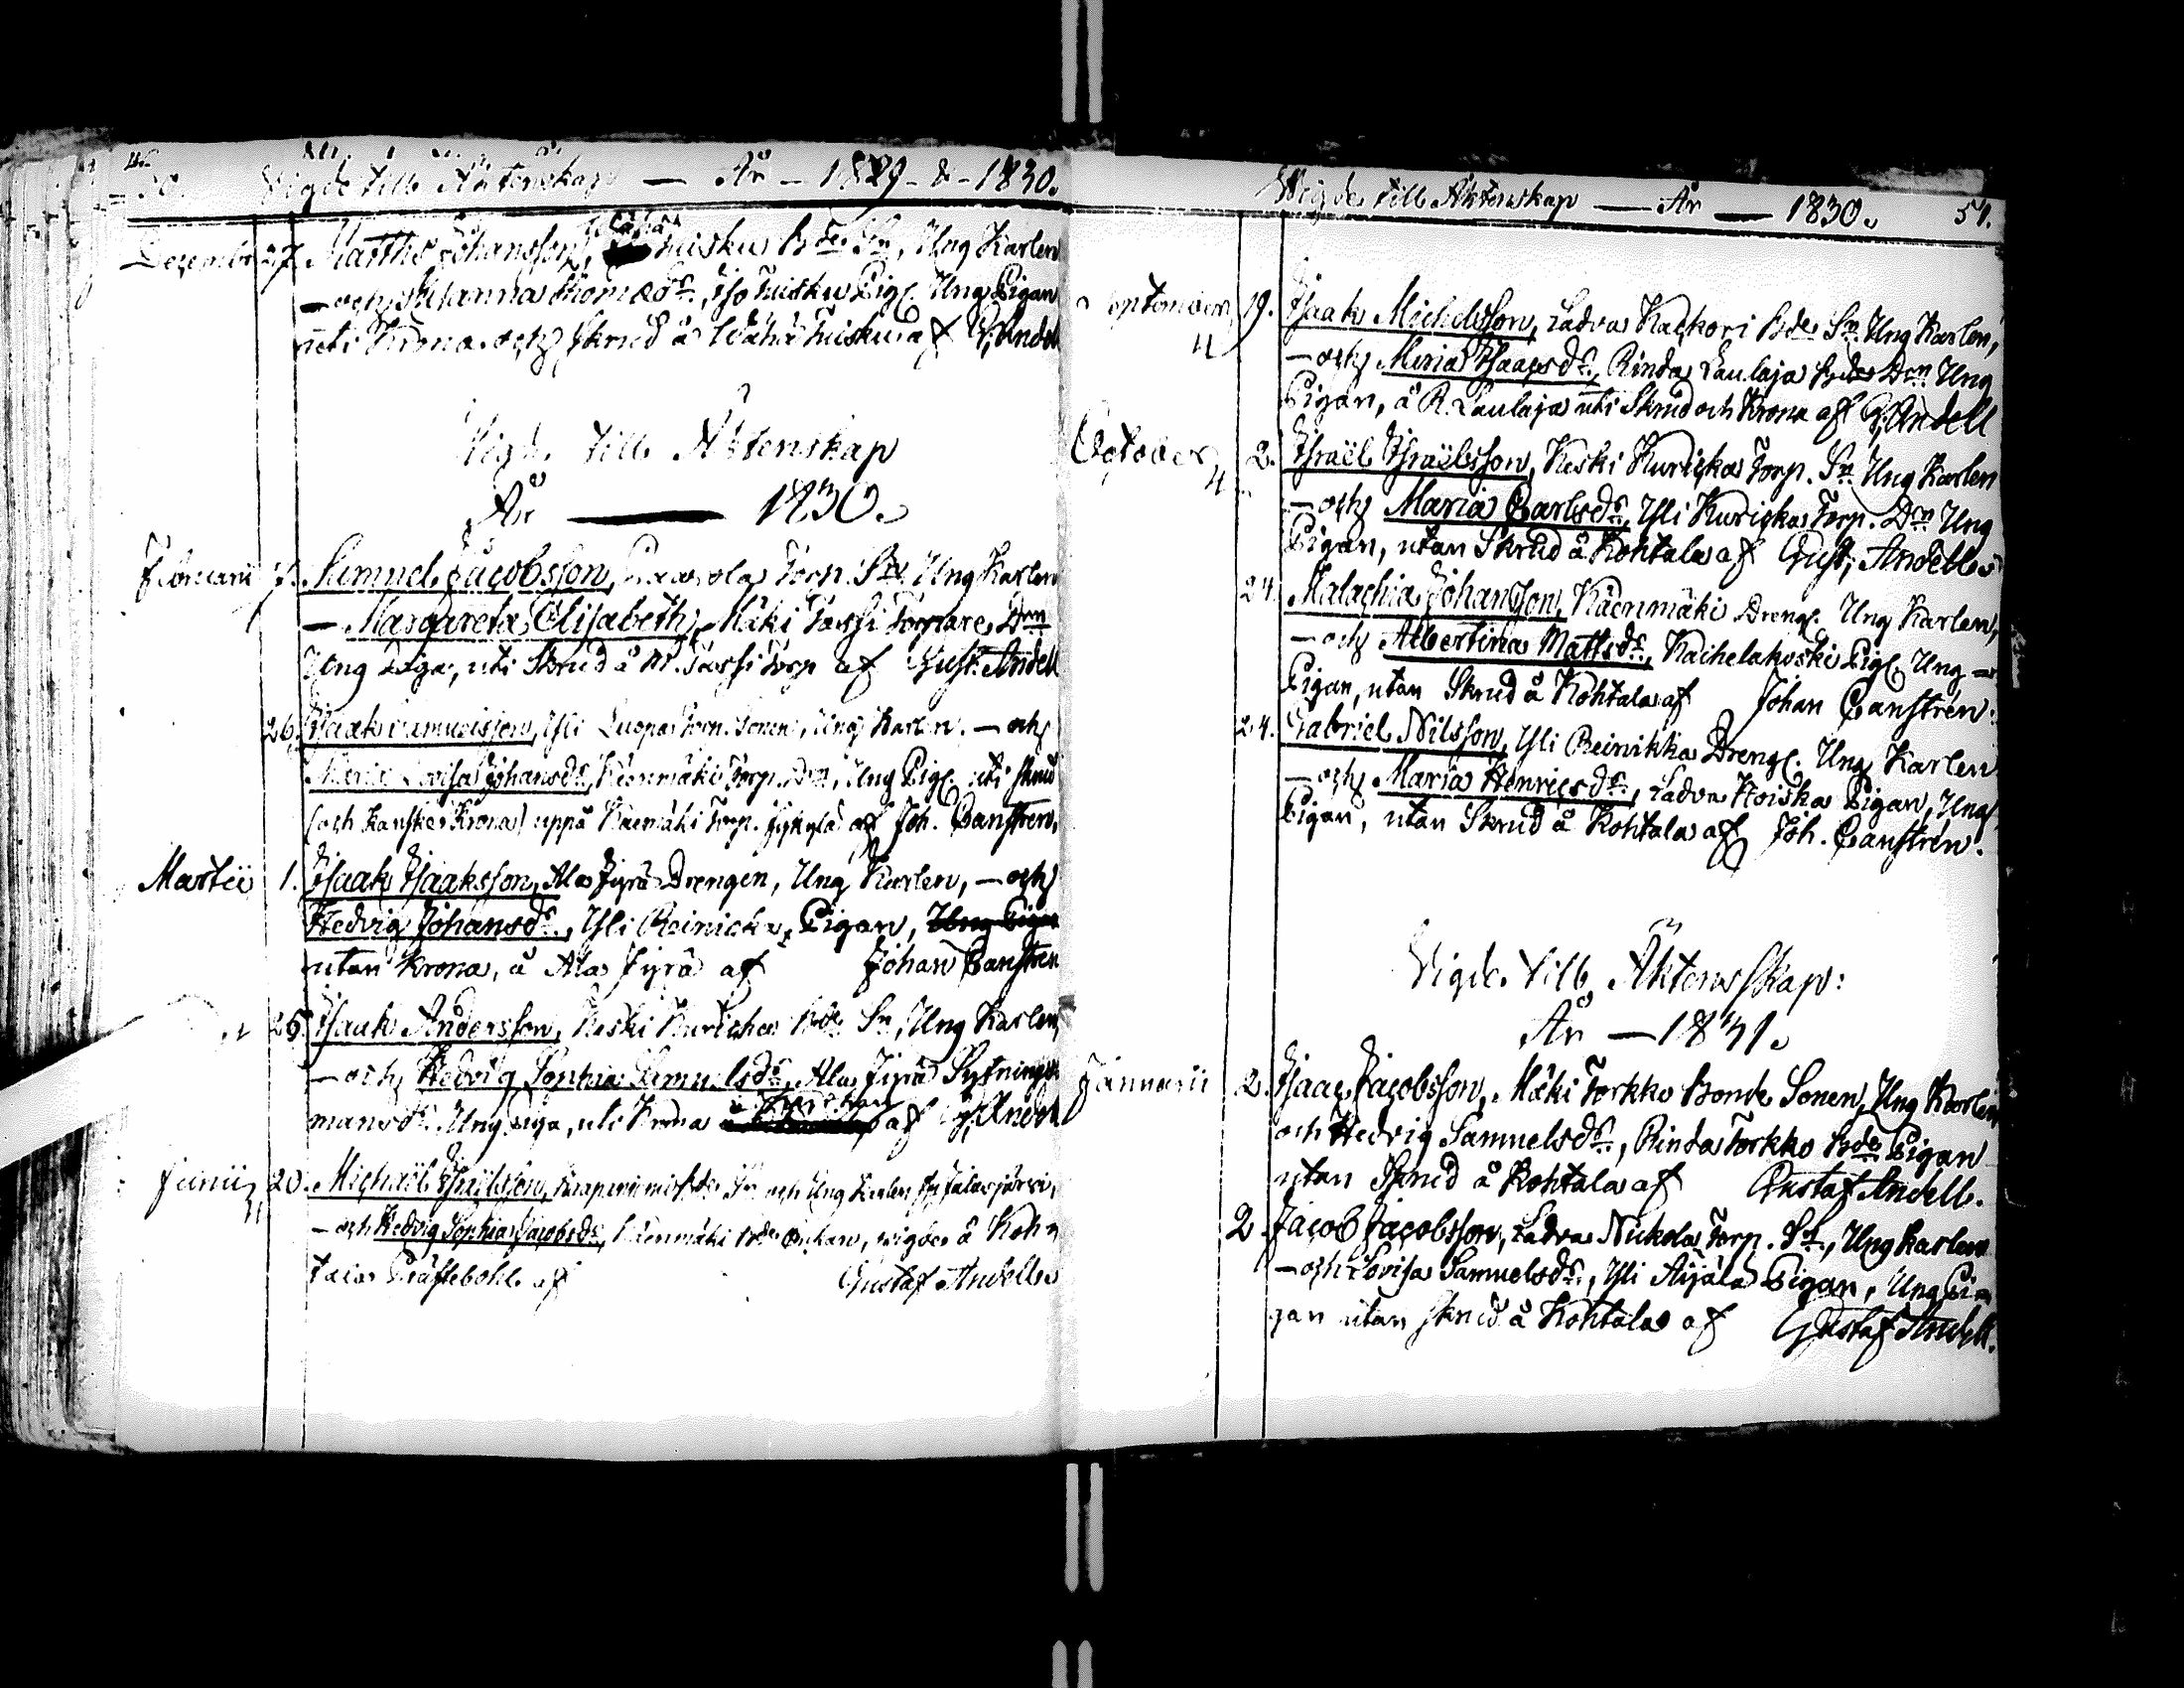 50. Vigde till Äktenskap — År — 1829 - & - 1830.
Decembr 27. Matths Johansson, Wähä huisku Bde Sn, Ung Karlen
— och Susanna Thomædr., Iso huisku Pig. Ung Pigan
uti Krona och Skrud å Wähä huisku af G, Andel
Vigde till Äktenskap
År — 1830.
Februarii 7. Samuel Jacobsson, Torp. Sn. Ung Karlen
— Margareta Elisabeth, Mäki Passi Torpare Drn
Ung Piga, uti Skrud å M. Passi Torp af Gust. Andell
26. Isaak Samuelsson, Yli Luopa Torp. Sonen, Ung Karlen. — och
Maria Lovisa Johansdr., Käenmäki Torp. Drn, Ung Pig. uti skrud
(och kanske Krona) uppå Käenmäki Torp. Jykylä af Joh. Canstrén.
Martii 1. Isaak Isaaksson, Ala Jyrä Drengen, Ung Karlen, — och
Hedvig Johansdr., Yli Reinicka, Pigan, Ung Pigan
utan Krona, å Ala Jyrä af Johan Canstren
25. Isaak Andersson, Keski Kuricka Bde Sn, Ung Karlen,
— och Hedvig Sophia Samuelsdr., Ala Jyrä Sytnings-
mansdr. Ung Piga, uti Krona af G, Andell
Junii 20. Michaël Isaïlsson, Bde Sn och Ung Karlen ifr Jalasjärvi,
— och Hedvig Sophia Jacobsdr, Käenmäki Bde Enkan, vigde å Koh-
tala Prästebohl af Gustaf Andell
Vigde till Äktenskap — År — 1830. 51.
September 19. Isaak Michelsson, Ladva Kackori Bde Sn. Ung Karlen,
— och Maria Isaacsdr., Rinda Laulaja Bde Drn Ung
Pigan, å R. Laulaja uti Skrud och Krona af G, Andell
October 2. Israël Israëlsson, Keski Kuricka Torp. Sn. Ung Karlen
— och Maria Carlsdr, Yli Kuricka Torp. Drn Ung
Pigan, utan Skrud å Kohtala af Gust, Andell
24. Malachia Johansson, Käenmäki Dreng. Ung Karlen,
— och Albertina Mattsdr., Kaihelakoski Pig. Ung
Pigan, utan Skrud å Kohtala af Johan Canstrén.
24. Gabriel Nilsson, Yli Reinikka Dreng. Ung Karlen
— och Maria Henricsdr., Ladva Hoiska Pigan, Ung
Pigan, utan Skrud å Kohtala af Joh. Canstrén.
Vigde till Äktenskap:
År — 1831.
Januarii 2. Isaac Jacobsson, Mäki Torkko Bonde Sonen, Ung Karlen
och Hedvig Samuelsdr., Rinda Torkko Bde Pigan
utan Skrud å Kohtala af Gustaf Andell.
2. Jacob Jacobsson, Ladva Nickola Torp. Sn, Ung Karlen
— och Lovisa Samuelsdr., Yli Äijälä Pigan, Ung Pi-
gan utan skrud å Kohtala af Gustaf Andell.